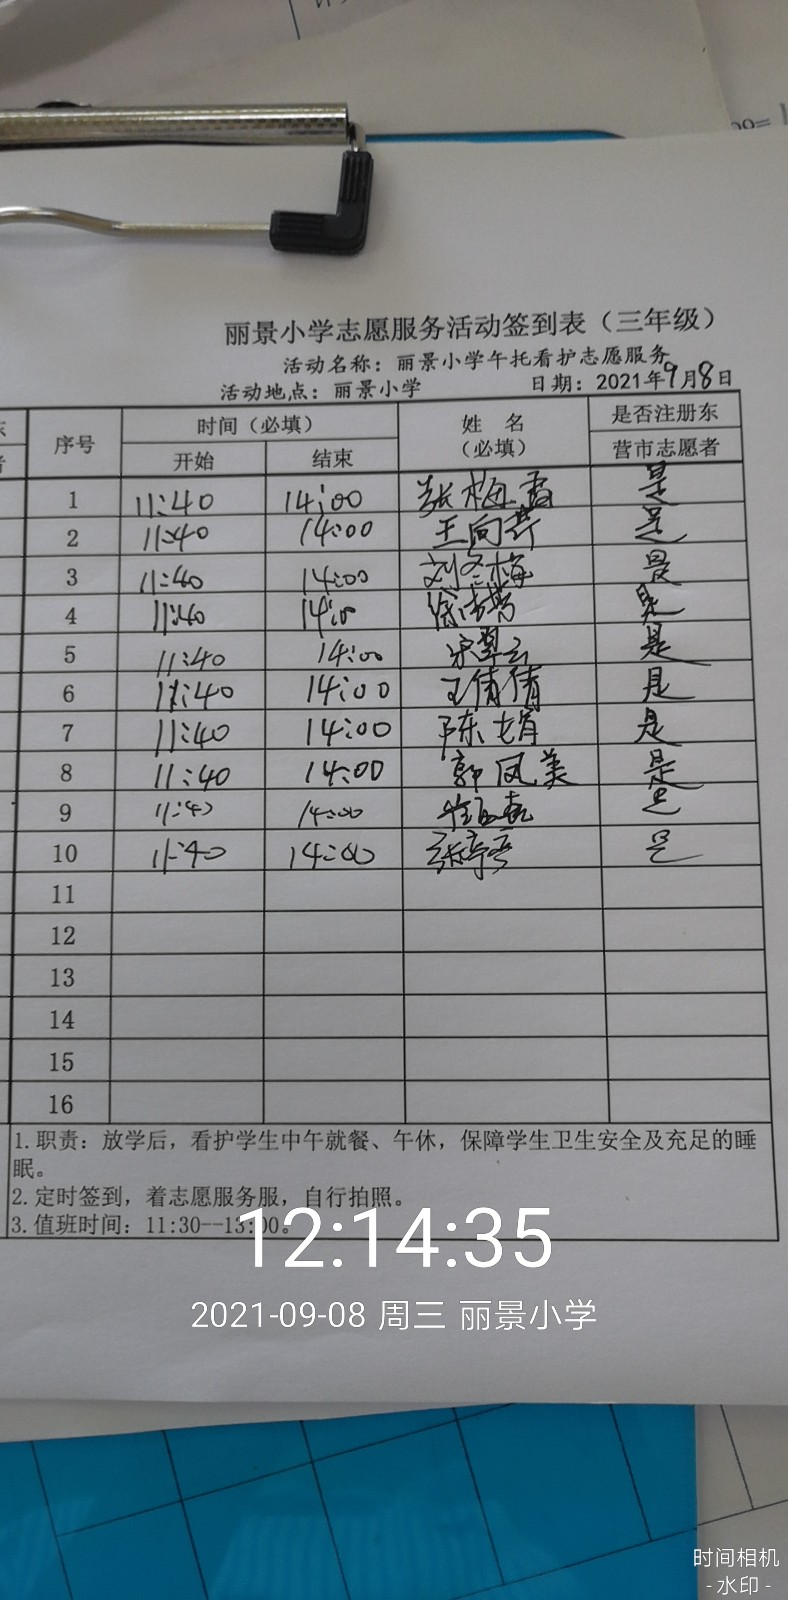 丽景小学志愿服务活动签到表（三年级）
活动名称：丽景小学午托看护志愿服务
活动地点：丽景小学 日期：2021年9月8日
序号 时间（必填） 姓 名（必填） 是否注册东营市志愿者
开始 结束
1 11:40 14:00 张梅香 是
2 11:40 14:00 王向芹 是
3 11:40 14:00 刘冬梅 是
4 11:40 是
5 11:40 14:00 宋翠云 是
6 11:40 14:00 王倩倩 是
7 11:40 14:00 陈娟 是
8 11:40 14:00 郭凤美 是
9 11:40 14:00 是
10 11:40 14:00 是
11
12
13
14
15
16
1.职责：放学后，看护学生中午就餐、午休，保障学生卫生安全及充足的睡
眠。
2.定时签到，着志愿服务服，自行拍照。
3.值班时间：11:30--13:00。
12:14:35
2021-09-08 周三 丽景小学
时间相机
- 水印 -